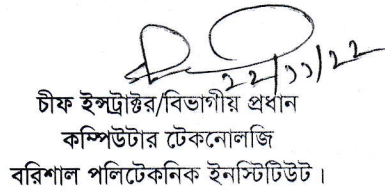 ২২/১১/২২
চীফ ইন্সট্রাক্টর/বিভাগীয় প্রধান
কম্পিউটার টেকনোলজি
বরিশাল পলিটেকনিক ইনস্টিটিউট।